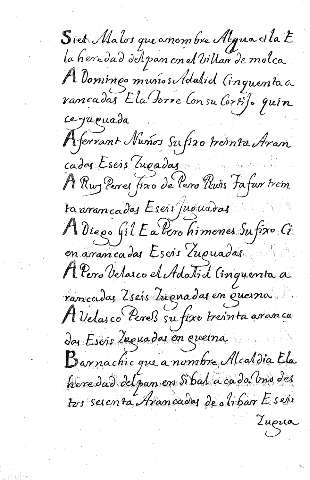 Siet Malos que a nombre Alguacila E
la heredad del pan en el Villar de molca
A Domingo muños Adalid Cinquenta a
rancadas E la Torre Con su Cortijo quin
ce juguada
A ferrant Nuños su fixo treinta Aran
cadas E seis Zugadas
A Ruy Peres fixo de Pero Ruis Tafur trein
ta arancadas E seis juguadas
A Diego Gil E a Pero himenes su fixo Ci
en arancadas E seis Zuguadas
A Pero Velasco el Adalid Cinquenta a
rancadas Zseis Zuguadas en gueina
A Velasco Peres su fixo treinta aranca
das E seis Zuguadas en gueina
Barnachic que a nombre Alcaldia E la
heredad del pan en Sibal a cada uno des
tos sesenta Arancadas de olibar E seis
Zugua